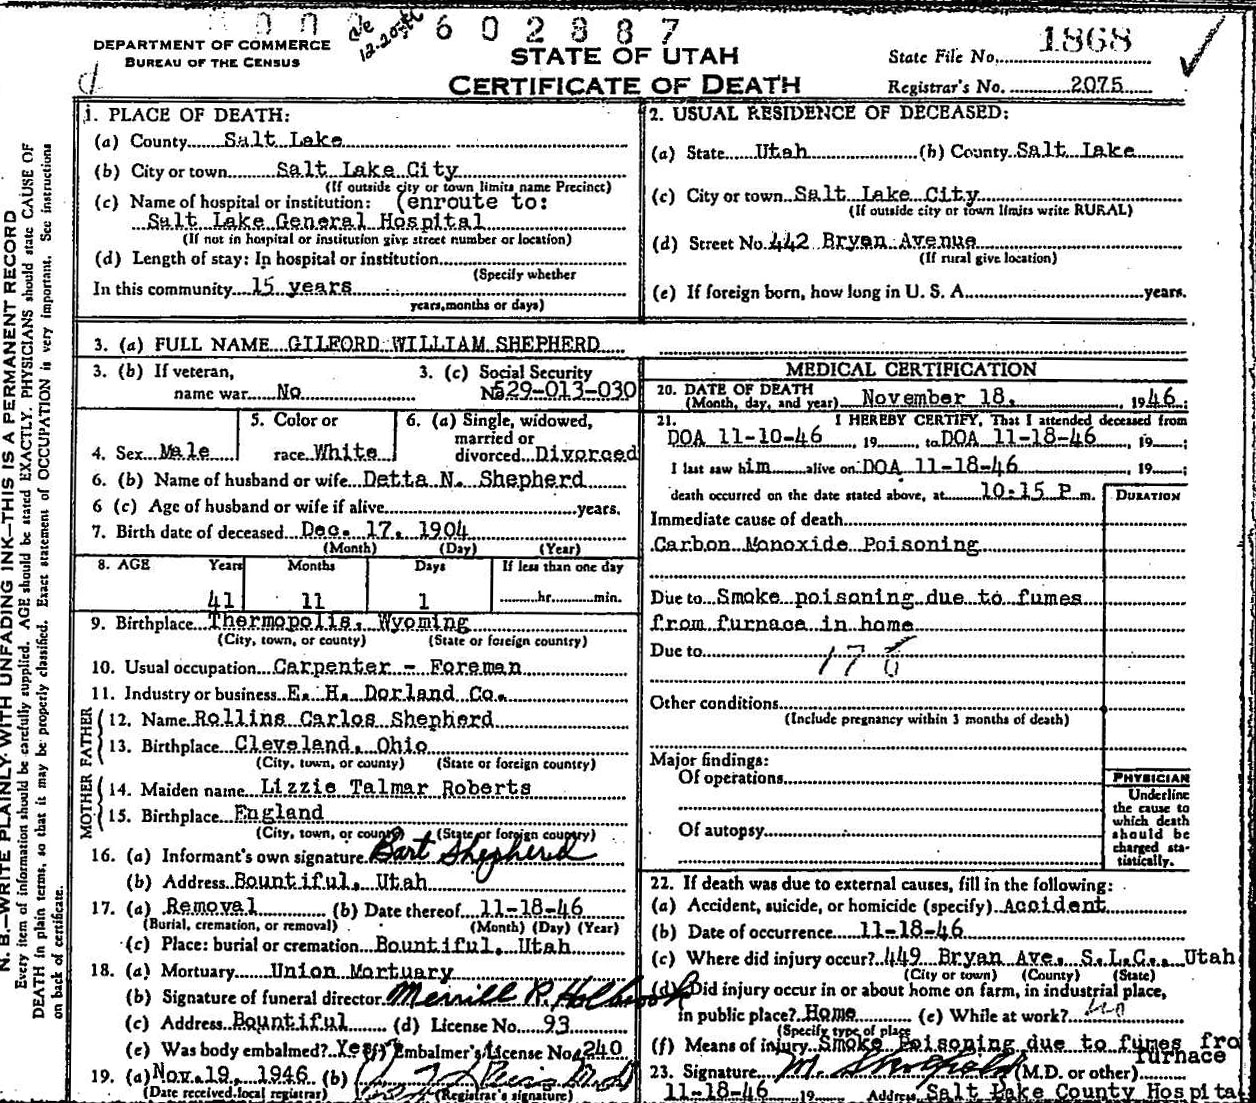 602887
12-20
DEPARTMENT OF COMMERCE
BUREAU OF THE CENSUS
STATE OF UTAH
CERTIFICATE OF DEATH
State File No. 1868
Registrar's No. 2075
N. B.—WRITE PLAINLY WITH UNFADING INK—THIS IS A PERMANENT RECORD
Every item of information should be carefully supplied. AGE should be stated EXACTLY. PHYSICIANS should state CAUSE OF
DEATH in plain terms, so that it may be properly classified. Exact statement of OCCUPATION is very important. See instructions
on back of certificate.
1. PLACE OF DEATH:
(a) County Salt Lake
(b) City or town Salt Lake City
(If outside city or town limits name Precinct)
(c) Name of hospital or institution: (enroute to:
Salt Lake General Hospital
(If not in hospital or institution give street number or location)
(d) Length of stay: In hospital or institution
(Specify whether
In this community 15 years
years, months or days)
2. USUAL RESIDENCE OF DECEASED:
(a) State Utah (b) County Salt Lake
(c) City or town Salt Lake City
(If outside city or town limits write RURAL)
(d) Street No. 442 Bryan Avenue
(If rural give location)
(e) If foreign born, how long in U. S. A. years.
3. (a) FULL NAME GILFORD WILLIAM SHEPHERD
3. (b) If veteran,
name war No
3. (c) Social Security
No 529-013-030
4. Sex Male
5. Color or
race White
6. (a) Single, widowed,
married or
divorced Divorced
6. (b) Name of husband or wife Detta N. Shepherd
6 (c) Age of husband or wife if alive years.
7. Birth date of deceased Dec. 17, 1904
(Month) (Day) (Year)
8. AGE Years Months Days If less than one day
41 11 1 hr. min.
9. Birthplace Thermopolis, Wyoming
(City, town, or county) (State or foreign country)
10. Usual occupation Carpenter - Foreman
11. Industry or business E. H. Dorland Co.
FATHER
12. Name Rollins Carlos Shepherd
13. Birthplace Cleveland, Ohio
(City, town, or county) (State or foreign country)
MOTHER
14. Maiden name Lizzie Talmar Roberts
15. Birthplace England
(City, town, or county) (State or foreign country)
16. (a) Informant's own signature Bart Shepherd
(b) Address Bountiful, Utah
17. (a) Removal (b) Date thereof 11-18-46
(Burial, cremation, or removal) (Month) (Day) (Year)
(c) Place: burial or cremation Bountiful, Utah
18. (a) Mortuary Union Mortuary
(b) Signature of funeral director Merrill R. Holbrook
(c) Address Bountiful (d) License No. 93
(e) Was body embalmed? Yes (f) Embalmer's License No. 240
19. (a) Nov. 19, 1946 (b)
(Date received local registrar) (Registrar's signature)
MEDICAL CERTIFICATION
20. DATE OF DEATH
(Month, day, and year) November 18, 1946;
21. I HEREBY CERTIFY, That I attended deceased from
DOA 11-10-46, 19 to DOA 11-18-46, 19 ;
I last saw him alive on DOA 11-18-46, 19 ;
death occurred on the date stated above, at 10:15 P m.
DURATION
Immediate cause of death
Carbon Monoxide Poisoning
Due to Smoke poisoning due to fumes
from furnace in home
Due to
178
Other conditions
(Include pregnancy within 3 months of death)
Major findings:
Of operations
Of autopsy
PHYSICIAN
Underline
the cause to
which death
should be
charged sta-
tistically.
22. If death was due to external causes, fill in the following:
(a) Accident, suicide, or homicide (specify) Accident
(b) Date of occurrence 11-18-46
(c) Where did injury occur? 449 Bryan Ave. S.L.C., Utah
(City or town) (County) (State)
(d) Did injury occur in or about home on farm, in industrial place,
in public place? Home (e) While at work? no
(Specify type of place
(f) Means of injury Smoke Poisoning due to fumes fro
furnace
23. Signature M. (M.D. or other)
11-18-46 19 Address Salt Lake County Hospita